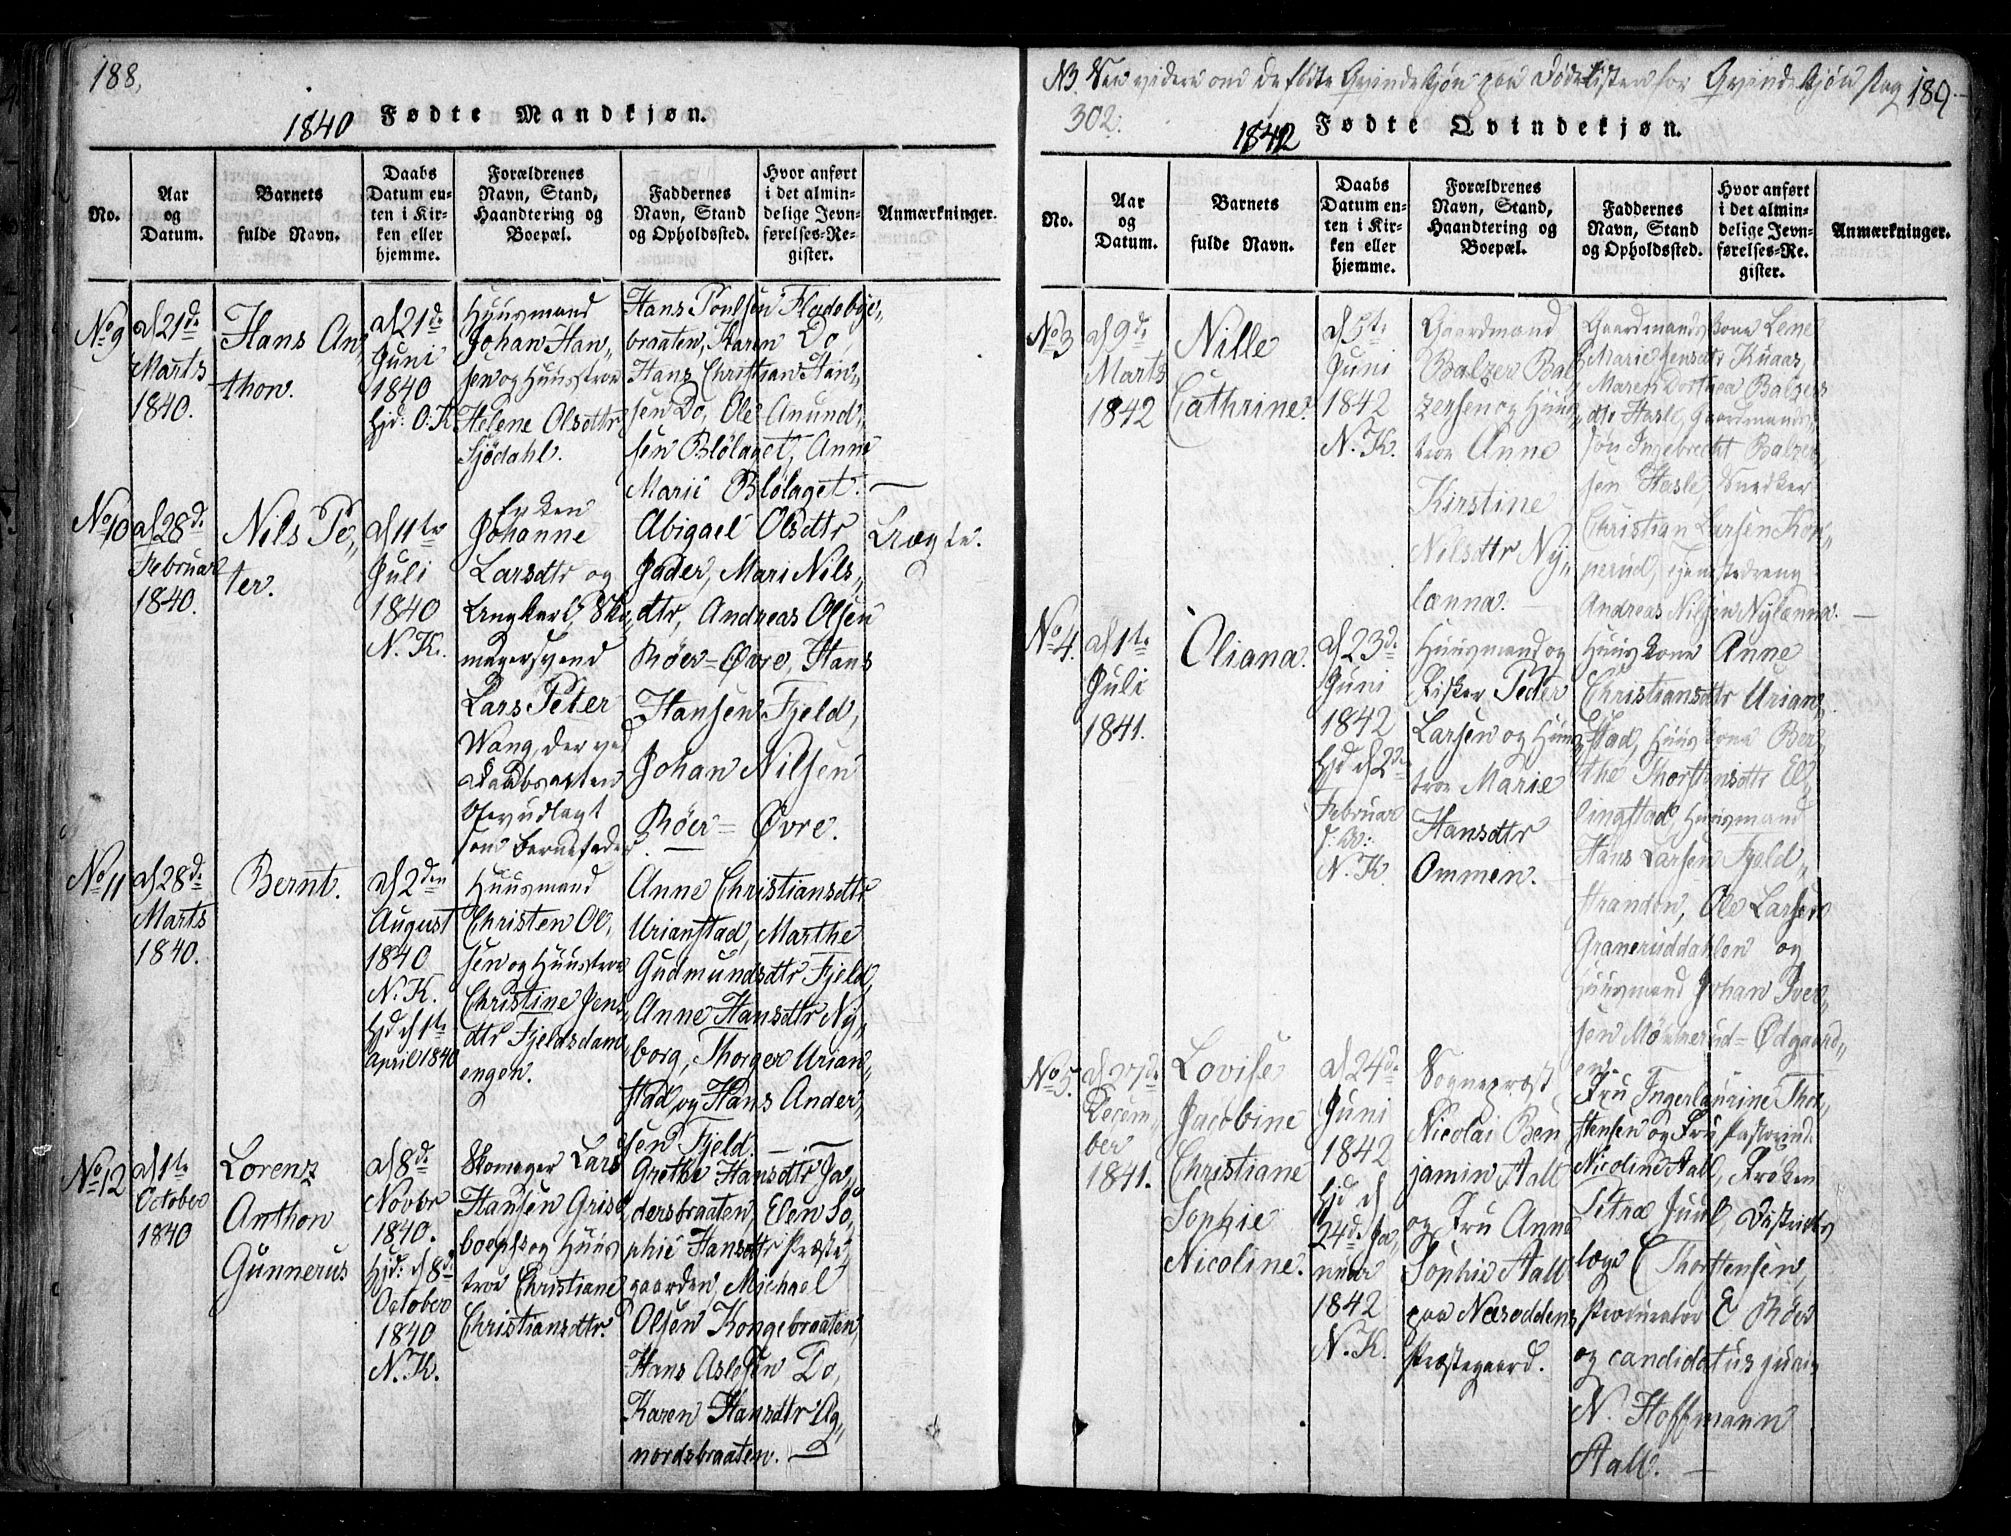 188.
1840 Fødte Mandkjøn.
No.
Aar
og
Datum.
Barnets
fulde Navn.
Daabs
Datum en-
ten i Kir-
ken eller
hjemme.
Forældrenes
Navn, Stand,
Haandtering og
Boepæl.
Faddernes
Navn, Stand
og Opholdssted.
Hvor anført
i det almin-
delige Jevn-
førelses-Re-
gister.
Anmærkninger.
No 9
d 21de
Marts
1840.
Hans An
thon.
d 21de
Juni
1840
Hjd: O. K.
Huusmand
Johan Han-
sen og Huustroe
Helene Olsdtr
Sjødahl.
Hans Poulsen Fladebye-
braaten, Karen Do,
Hans Christian Han-
sen Do, Ole Amund-
sen Blølaget, Anne
Marie Blølaget. —
No 10
d 28de
Februar
1840.
Nils Pe-
ter.
d 11te
Juli
1840
N. K.
Pyken
Johanne
Larsdtr og
Ungkarl, Sko-
magersvend
Lars Peter
Wang, der ved
Daabsacten
blev udlagt
som Barnefader
Abigael Olsdtr
Jader, Mari Nils-
dtr, Andreas Olsen
Røer=Øvre, Hans
Hansen Fjeld,
Johan Nilsen
Røer=Øvre.
Uægte.
No 11
d 28de
Marts
1840.
Bernt.
d 2den
August
1840
N. K.
Hjd d 1te
April 1840
Huusmand
Christen Ol-
sen og Huustroe
Christine Jens-
dtr Fjeldsdam-
engen.
Anne Christiansdtr
Urianstad, Marthe
Gudmundsdtr Fjeld,
Anne Hansdtr Ny-
borg, Thorger Urian-
stad og Hans Ander-
sen Fjeld. —
No 12
d 1te
October
1840
Lorenz
Anthon
Gunnerus
d 8de
Novbr
1840.
Hjd: d 8de
October
1840
N. K.
Skomager Lars
Hansen Grise
boepls og Huus
troe Christiane
Christiansdtr.
Grethe Hansdtr Ja-
dersbraaten, Elen So-
phie Hansdtr Præste-
gaarden, Michael
Olsen Kongebraaten,
Hans Aslesen Do,
Karen Hansdtr Ag-
nordsbraaten. —
NB See videre om de fødte Qvindekjøn paa Fødelisten for Qvindekjøn Pag 189.
302.
1842 Fødte Qvindekjøn.
No.
Aar
og
Datum.
Barnets
fulde Navn.
Daabs
Datum en-
ten i Kir-
ken eller
hjemme.
Forældrenes
Navn, Stand,
Haandtering og
Boepæl.
Faddernes
Navn, Stand
og Opholdssted.
Hvor anført
i det almin-
delige Jevn-
førelses-Re-
gister.
Anmærkninger.
No 3
d 9de
Marts
1842
Nille
Cathrine.
d 5te
Juni
1842
N. K.
Gaardmand
Balzer Bal-
zersen og Huus-
troe Anne
Kirstine
Nilsdtr Ny-
lænna. —
Gaardmandskone Lene
Marie Jensdtr Knaas,
Maren Dorthea Balzers
dtr Hasle, Gaardmands-
søn Ingebrecht Balzer-
sen Hasle, Snedker
Christian Larsen Kop-
perud, Tjenestedreng
Andreas Nilsen Nylænna. —
No 4.
d 1te
Juli
1841.
Oliana.
d 23de
Juni
1842
Hjd d 2den
Februar
N. K.
Huusmand og
Fisker Peder
Larsen og Huus
troe Marie
Hansdtr
Ommen. —
Huuskone Anne
Christiansdtr Urian-
stad, Huuskone Ber-
the Thorstensdtr El-
lingstad, Huusmand
Hans Larsen Fjeld-
stranden, Ole Larsen
Graneruddahlen og
Huusmand Johan Iver-
sen Mømmerud=Ødgaard-
en.
No 5.
d 27de
Decem-
ber
1841.
Lovise
Jacobine
Christiane
Sophie
Nicoline.
d 24de
Juni
1842
Hjd d
24de Ja-
nuar
1842
N. K.
Sognepræst
Nicolai Ben
jamin Aall
og Fru Anne
Sophie Aall
paa Næsoddens
Præstegaard.
Fru Ingerlaurine Thor-
stensen og Fru Pastorinde
Nicoline Aall, Frøken
Petræ Juul, Districts
læge C Thorstensen,
Procurator E Røer
og candidatus juris
N. Hoffmann
Aall. —